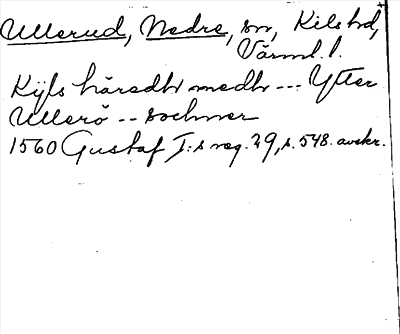 Ullerud, Nedre, sn, Kils hd,
Värml. l.
Kijls häredh medh --- Ytter
Ullerö -- sochner
1560 Gustaf I:s reg. 29, s. 548. avskr.